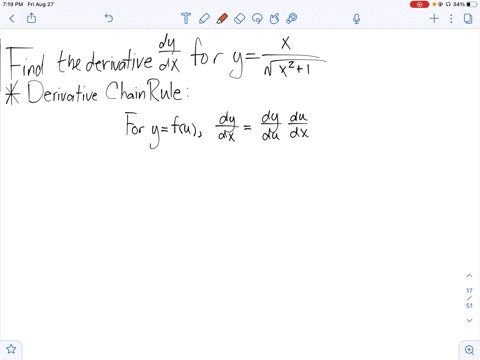 7:19 PM Fri Aug 27
34%
Find the derivative dy/dx for y = x/√(x²+1)
* Derivative Chain Rule:
For y = f(u), dy/dx = dy/du du/dx
17
/
51